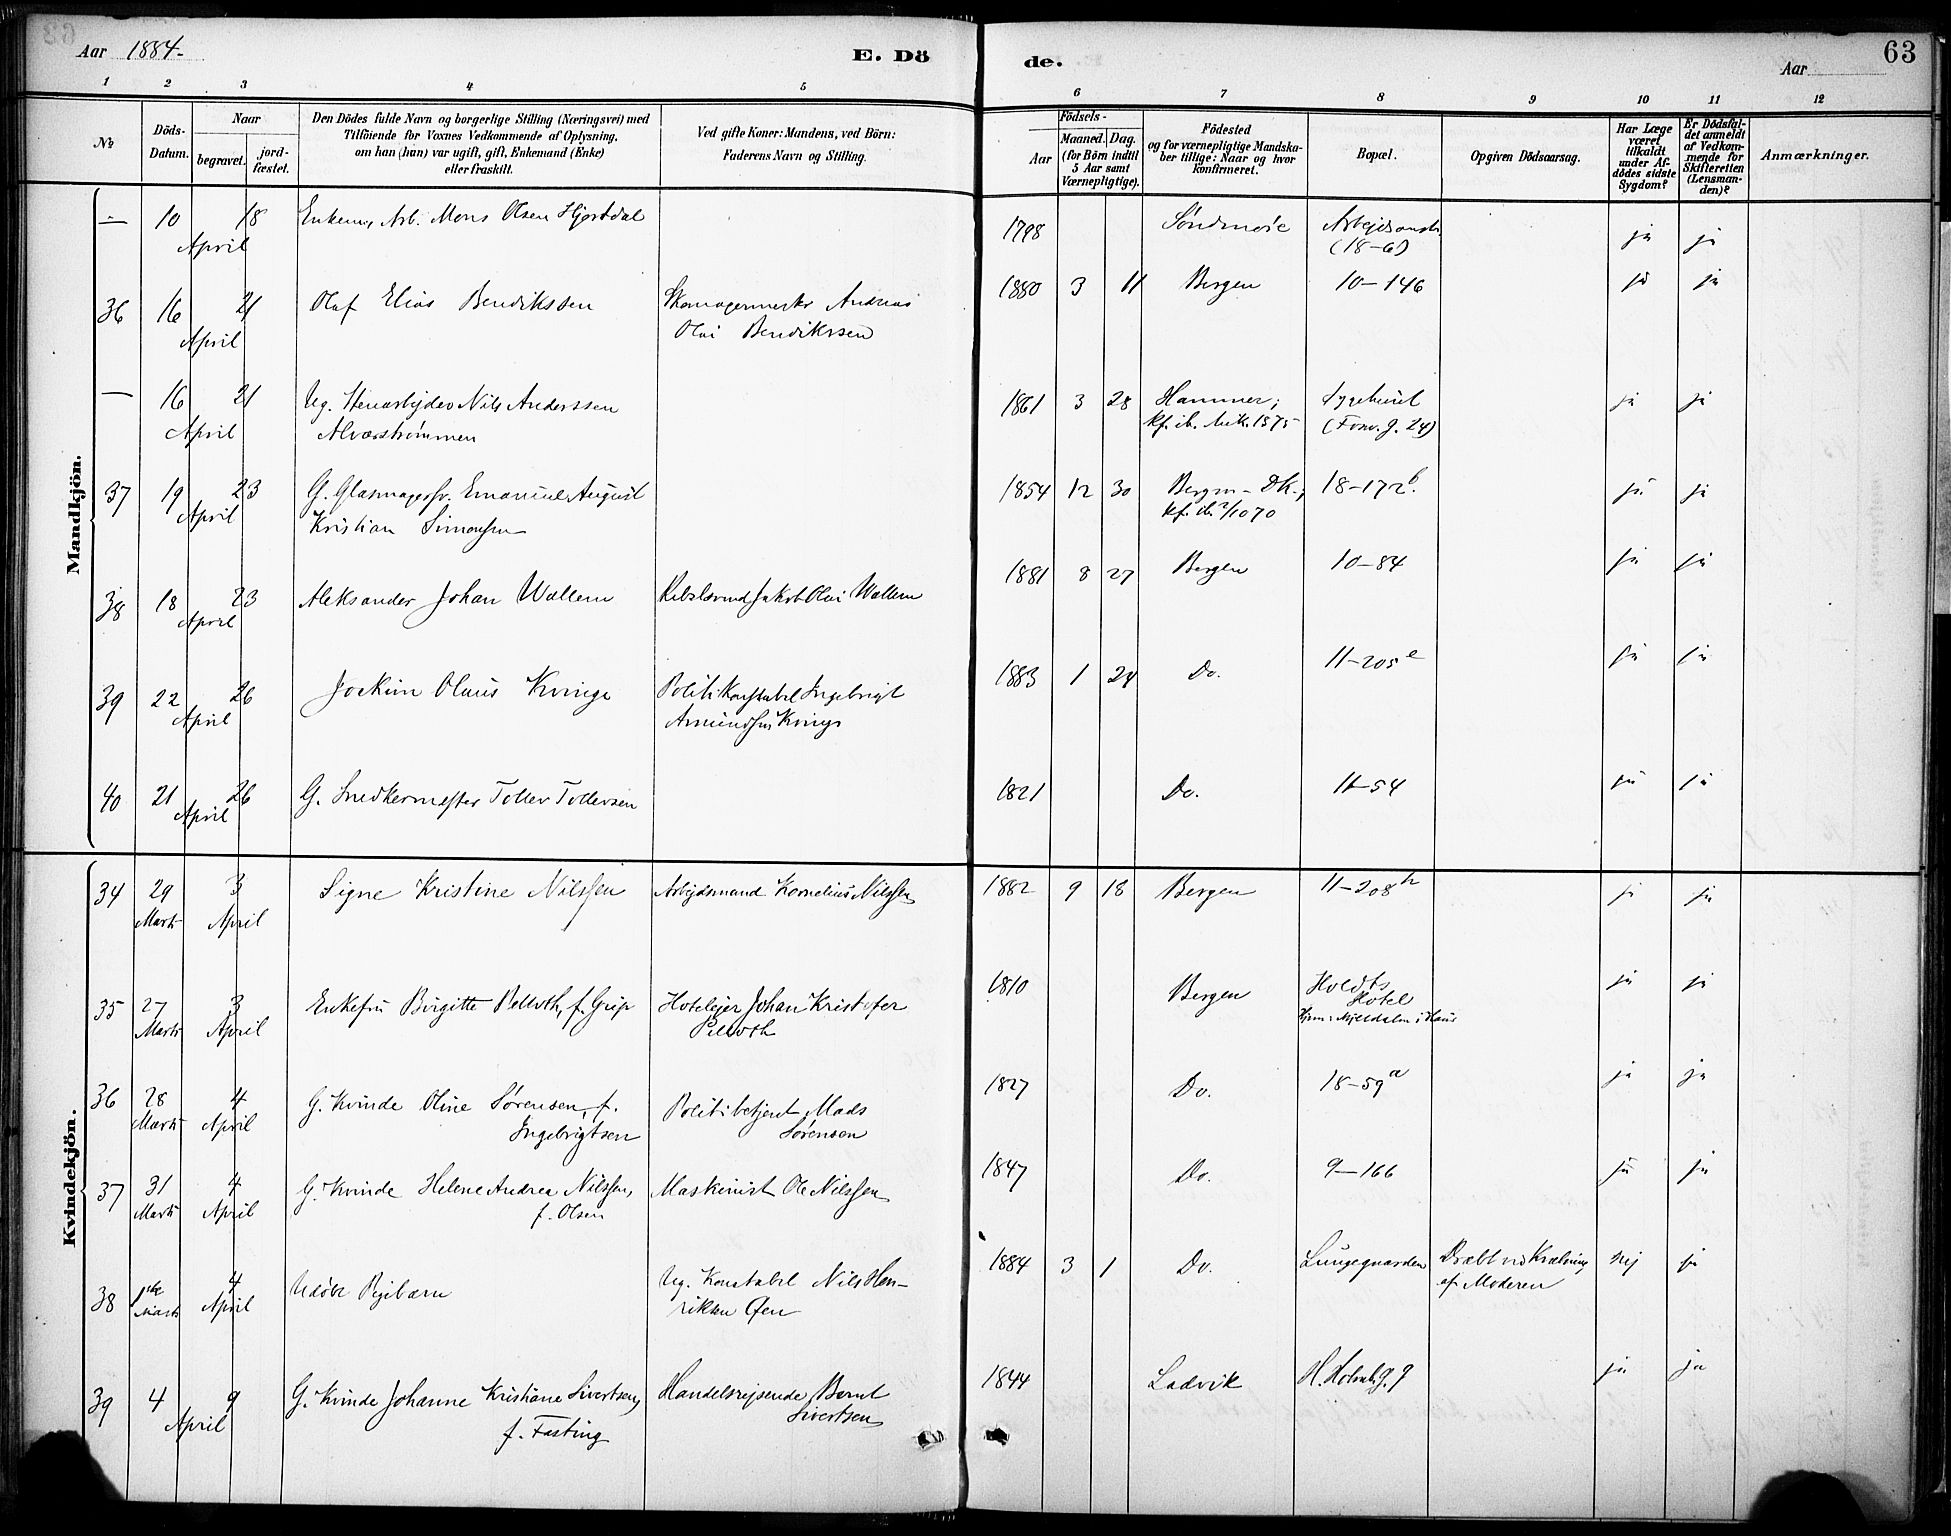 63
Aar 1884-
E. Dö
de.
Aar
1 2 3 4 5 6 7 8 9 10 11 12
№
Döds-
Datum.
Naar
begravet.
jord-
fæstet.
Den Dödes fulde Navn og borgerlige Stilling (Næringsvei) med
Tilföiende for Voxnes Vedkommende af Oplysning,
om han (hun) var ugift, gift, Enkemand (Enke)
eller fraskilt.
Ved gifte Koner: Mandens, ved Börn:
Faderens Navn og Stilling.
Födsels-
Aar
Maaned. Dag.
(for Börn indtil
5 Aar samt
Værnepligtige).
Födested
og for værnepligtige Mandska-
ber tillige: Naar og hvor
konfirmeret.
Bopæl.
Opgiven Dödsaarsag.
Har Læge
været
tilkaldt
under Af-
dödes sidste
Sygdom?
Er Dödsfal-
det anmeldt
af Vedkom-
mende for
Skifteretten
(Lensman-
den)?
Anmærkninger.
Mandkjön.
— 10 18 Enkem., Arb. Mons Olsen Hjortdal 1798 Søndmøre ja ja
April (18-6)
36 16 21 Olaf Elias Bendikssen Skomagermester Andreas 1880 3 11 Bergen 10-146 ja ja
April Olai Bendikssen
— 16 21 Ug. Stenarbejder Nils Anderssen 1861 3 28 Hammer; Sygehuset ja ja
April Alværstrømmen kf. ib. Mik. 1875 (Forv. g. 24)
37 19 23 G. Glasmagersv. Emanuel August 1854 12 30 Bergen - DK.; 18-172b. ja ja
April Kristian Simonsen kf. ib.
38 18 23 Aleksander Johan Wallem Jakob Olai Wallem 1881 8 27 Bergen 10-84 ja ja
April
39 22 26 Joakim Olaus Kvinge Politikonstabel Ingebrigt 1883 1 24 Do. 11-205e ja ja
April Amundsen Kvinge
40 21 26 G. Snedkermester Tollev Tollevsen 1821 Do. 11-54 ja ja
April
Kvindekjön.
34 29 3 Signe Kristine Nilssen Arbejdsmand Kornelius Nilssen 1882 9 18 Bergen 11-208h ja ja
Marts April
35 27 3 Enkefru Birgitte Pelloth, f. Grip Hotelejer Johan Kristofer 1810 Bergen Holdts ja ja
Marts April Pelloth Hotel
Hjem: Mjeldalen i Haus
36 28 4 G. Kvinde Oline Sørensen, f. Politibetjent Mads 1827 Do. 18-59a ja ja
Marts April Ingebrigtsen Sørensen
37 31 4 G. Kvinde Helene Andrea Nilssen, Maskinist Ole Nilssen 1847 Do. 9-166 ja ja
Marts April f. Olsen
38 1ste 4 Udøbt Pigebarn Ug. Konstabel Nils Hen- 1884 3 1 Do. Lungegaarden Dræbt ved Kvælning nej ja
Marts April riksen Øen af Moderen
39 4 9 G. Kvinde Johanne Kristiane Sivertsen, Handelsrejsende Bernt 1844 Ladvik H. Holmb.g. 9 ja ja
April f. Fasting Sivertsen